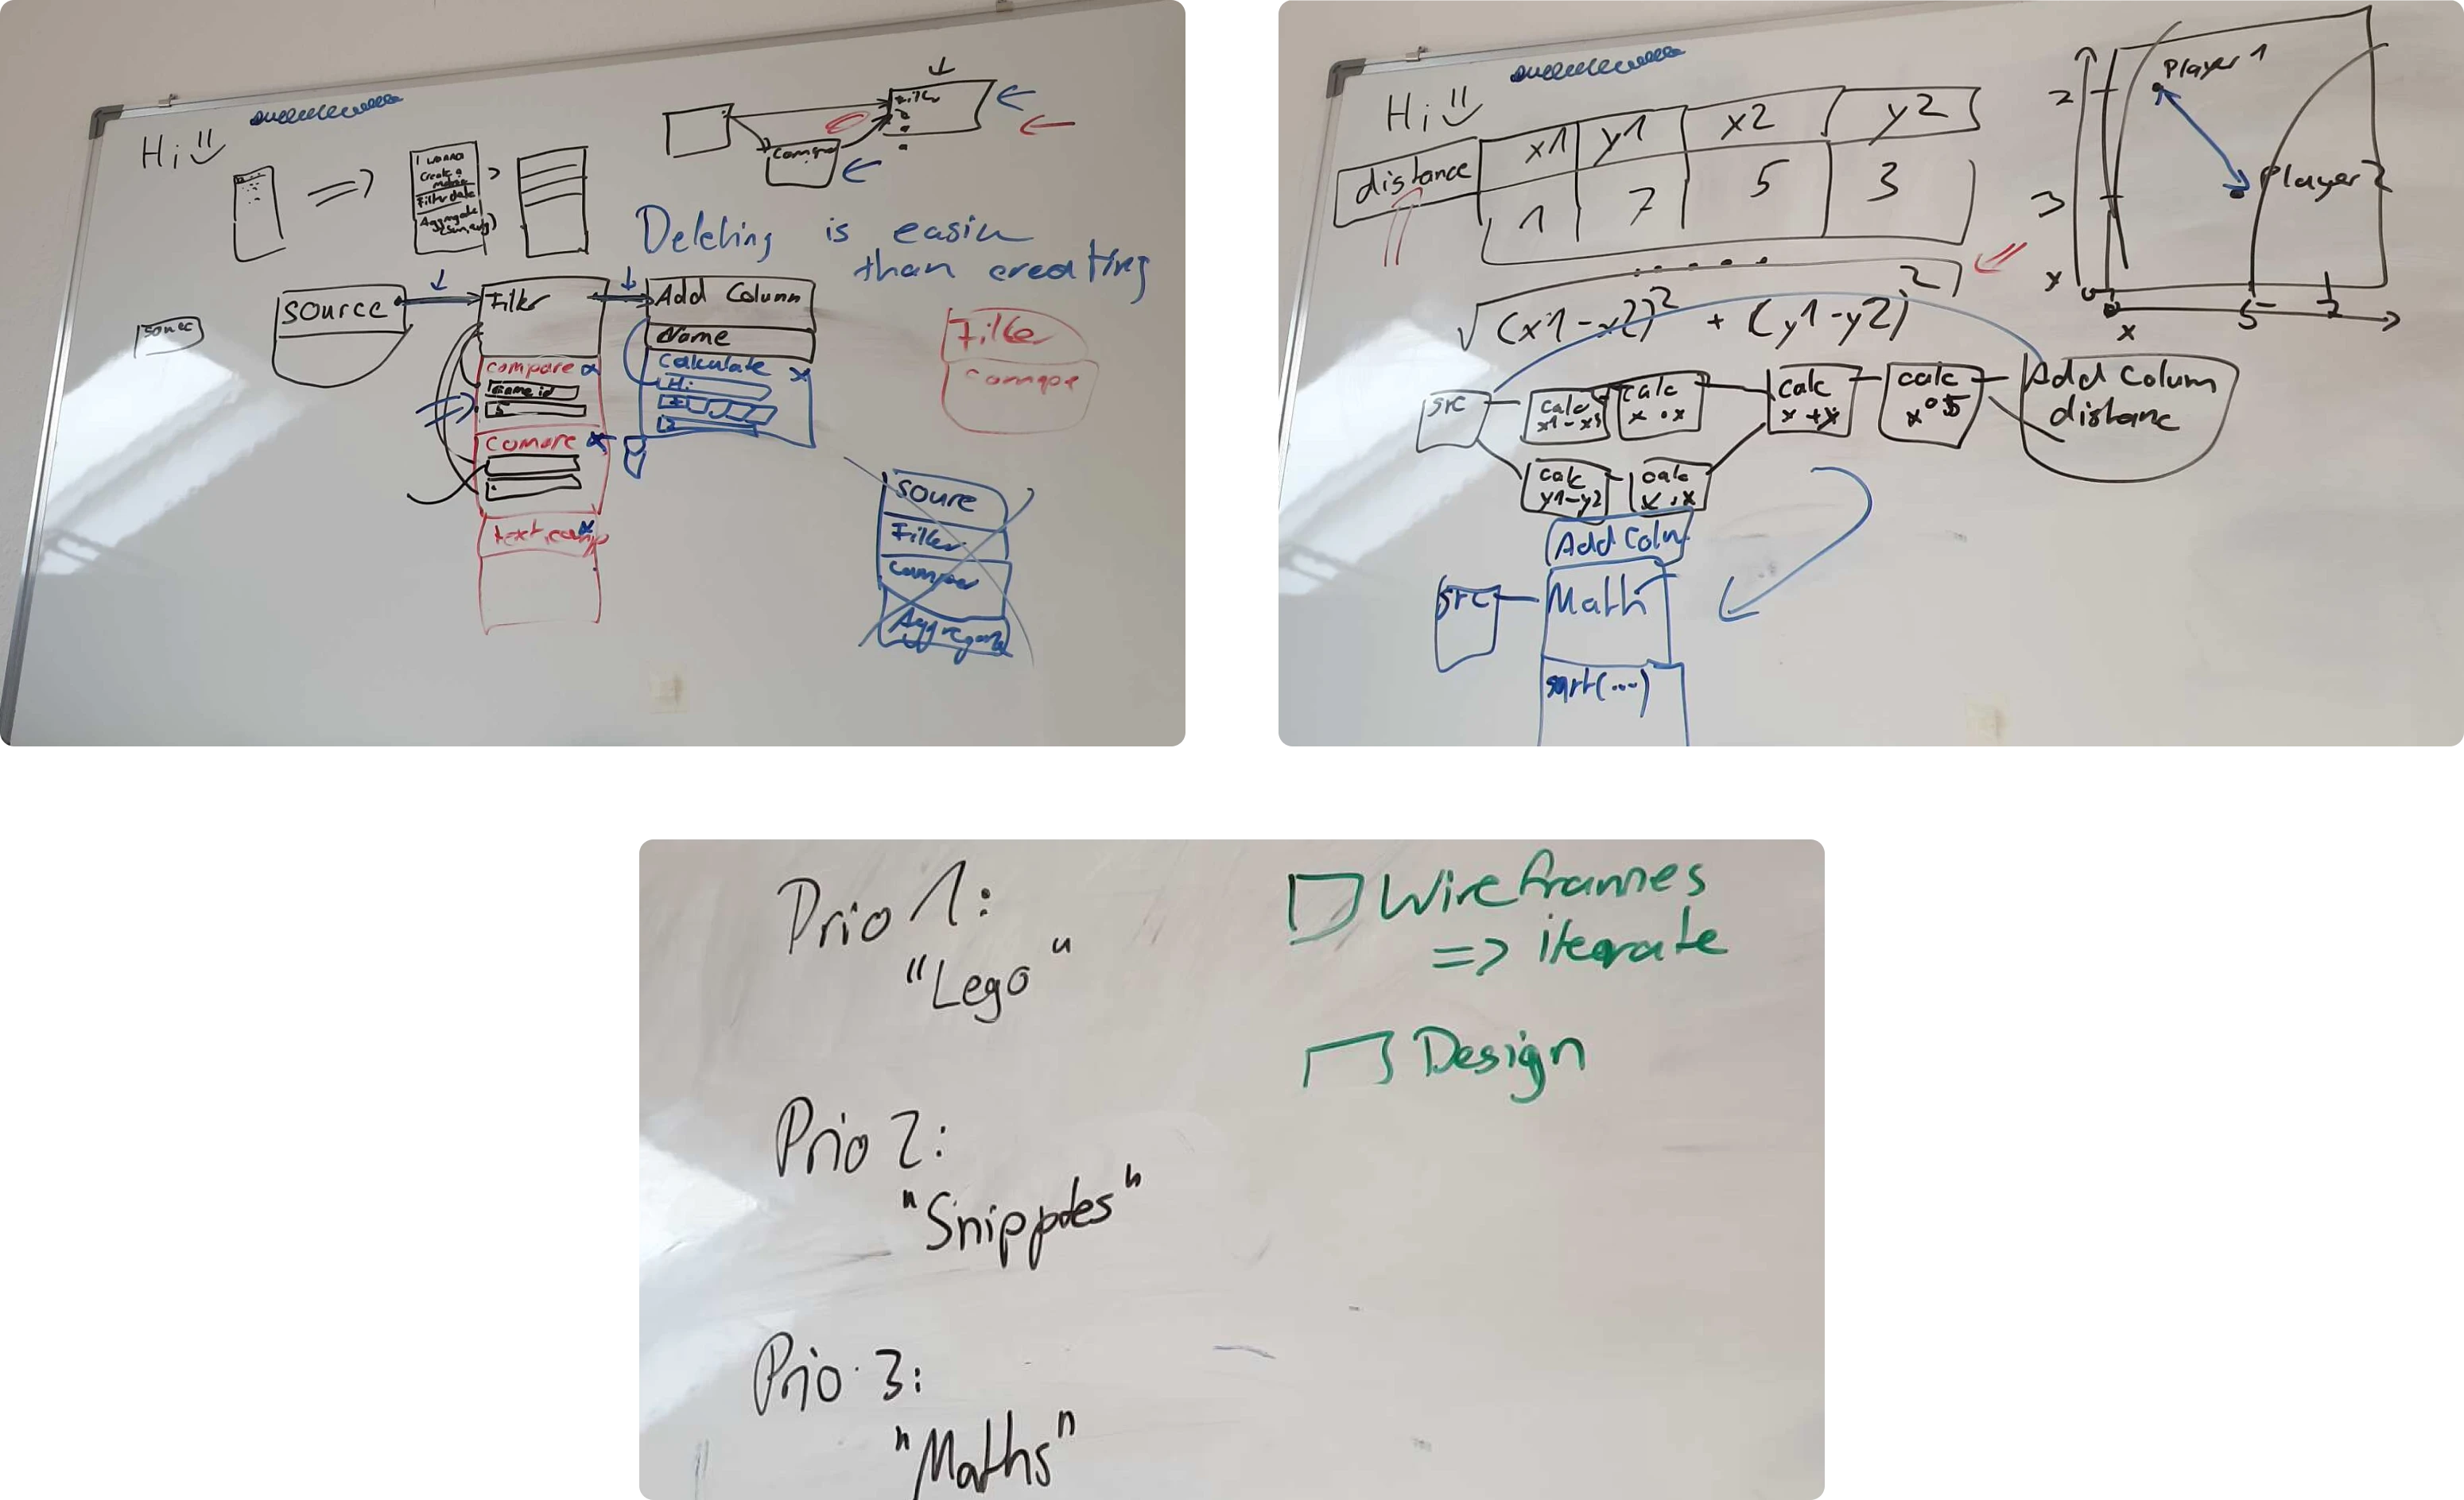 Hi
I wanna
Create a
Filter data
Aggregate
Filter
Deleting is easier
than creating
source
Filter
Add Column
Name
Calculate
Hi
compare
game id
5
Comare
Filter
soure
Filter
Aggregate
Hi
distance
x1
y1
x2
y2
1
7
5
3
√(x1-x2)² + (y1-y2)²
Player 1
Player 2
2
3
x
0
5
x
src
calc
x1-x2
calc
x . x
calc
x + y
calc
x^0.5
Add Colum
distane
calc
y1-y2
calc
x . x
Add Colm
src
Math
sqrt(...)
Prio 1:
"Lego"
Prio 2:
"Snipptes"
Prio 3:
"Maths"
Wireframes
=> iterate
Design